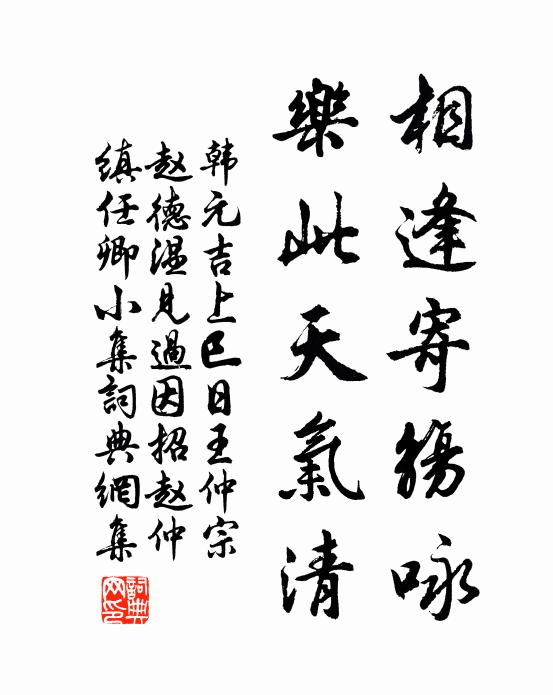 相逢寄觴咏
樂此天氣清
韩元吉上巳日王仲宗
赵德温見過因招赵仲
缜任卿小集詞典網集
詞典網印